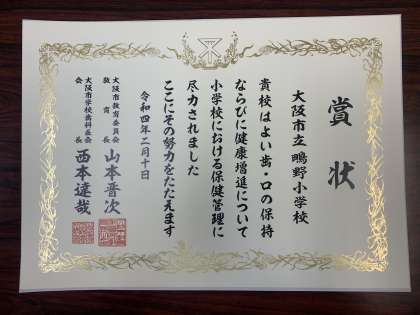 賞状
大阪市立 鴫野小学校
貴校はよい歯・口の保持
ならびに健康増進について
小学校における保健管理に
尽力されました
ここにその努力をたたえます
令和四年二月十日
大阪市教育委員会
教育長 山本晋次
大阪市学校歯科医会
会長 西本達哉